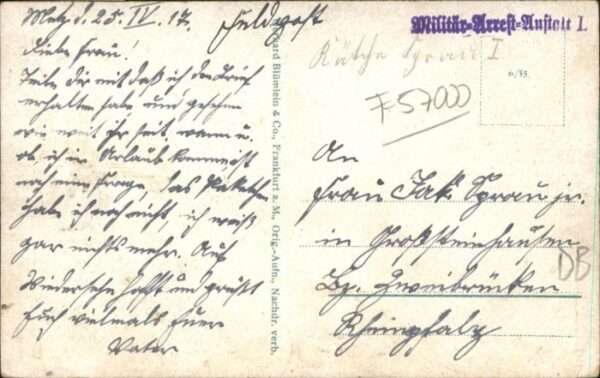 Metz d. 25. IV. 17.
Feldpost
Liebe Frau!
Teile dir mit daß ich den Brief
erhalten habe und gesehen
wie weit ihr seit, wann u.
ob ich in Urlaub komme ist
noch eine Frage, das Paketchen
habe ich noch nicht, ich weiß
gar nichts mehr. Auf
Wiedersehn hofft und grüßt
Euch vielmals Euer
Vater
Blümlein & Co., Frankfurt a. M., Orig.-Aufn., Nachdr. verb.
Militär-Arrest-Anstalt I.
Käthe Sprau I
6/35
F 57000
An
Frau Jak. Sprau jr.
in Großsteinhausen
Bz. Zweibrücken
Rheinpfalz
DB